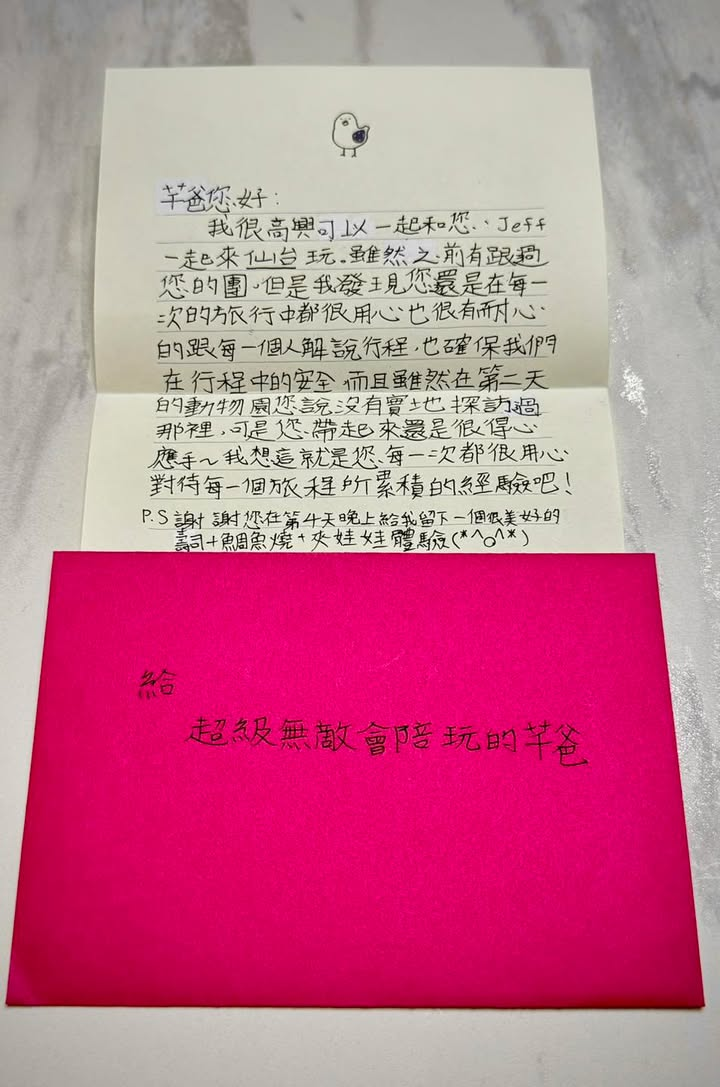 芊爸您好：
我很高興可以一起和您、Jeff
一起來仙台玩。雖然之前有跟過
您的團，但是我發現您還是在每一
次的旅行中都很用心也很有耐心
的跟每一個人解說行程，也確保我們
在行程中的安全，而且雖然在第二天
的動物園您說沒有實地探訪過
那裡，可是您帶起來還是很得心
應手～我想這就是您每一次都很用心
對待每一個旅程所累積的經驗吧！
P.S 謝謝您在第4天晚上給我留下一個很美好的
壽司+鯛魚燒+夾娃娃體驗(*^o^*)
給
超級無敵會陪玩的芊爸